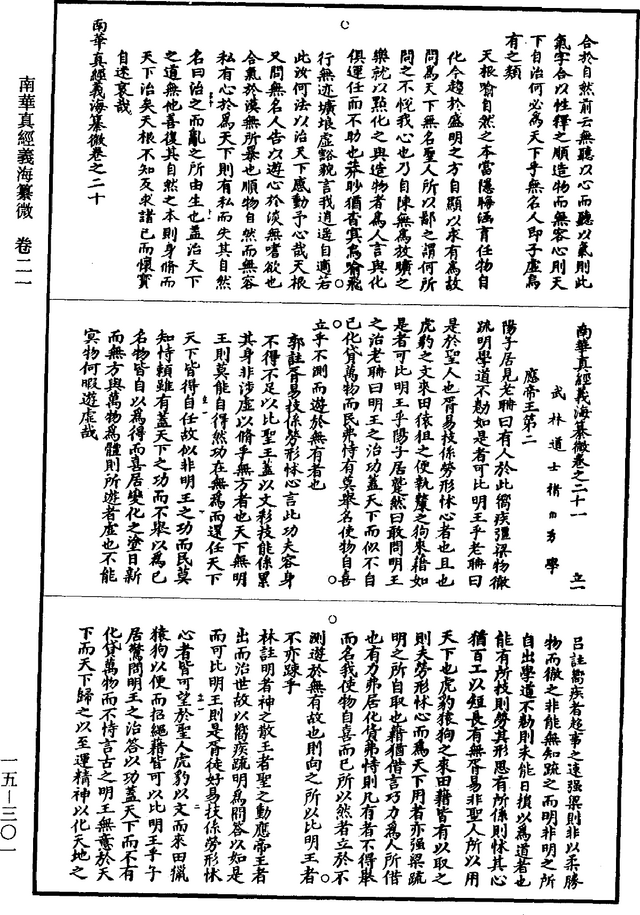 南華真經義海纂微 卷二一
一五—三〇一
合於自然前云無聽以心而聽以氣則此
氣字合以性釋之順造物而無容心則天
下自治何必為天下乎無名人即子虛烏
有之類
天根喻自然之本當隱晦涵育任物自
化今趨於盛明之方自顯以求有為故
問為天下無名聖人所以鄙之謂何所
問之不悅我心也乃自陳無為放曠之
樂就以點化之與造物者為人言與化
俱運任而不助也莽眇猶杳冥鳥喻飛
行無迹壙埌虛豁貌言我逍遥自適若
此汝何法以治天下感動予心哉天根
又問無名人告以遊心於淡無嗜欲也
合氣於漠無所暴也順物自然而無容
私有心於為天下則有私而失其自然
名曰治之而亂之所由生也蓋治天下
之道無他善復其自然之本則身脩而
天下治矣天根不知反求諸己而懷寳
自迷哀哉
南華真經義海纂微卷之二十
南華真經義海纂微卷之二十一
武林道士褚伯秀學
應帝王第二
陽子居見老聃曰有人於此嚮疾彊梁物徹
疏明學道不勌如是者可比明王乎老聃曰
是於聖人也胥易技係勞形怵心者也且也
虎豹之文來田猨狙之便執斄之狗來藉如
是者可比明王乎陽子居蹵然曰敢問明王
之治老聃曰明王之治功蓋天下而似不自
己化貸萬物而民弗恃有莫舉名使物自喜
立乎不測而遊於無有者也
郭註胥易技係勞形怵心言此功夫容身
不得不足以比聖王蓋以文彩技能係累
其身非涉虛以脩乎無方者也天下無明
王則莫能自得然功在無為而還任天下
天下皆得自任故似非明王之功而民莫
知恃賴雖有蓋天下之功而不舉以為己
名物皆自以為得而喜居變化之塗日新
而無方與萬物為體則所遊者虛也不能
冥物何暇遊虛哉
呂註嚮疾者趁事之速强梁則非以柔勝
物而徹之非能無知疏之而明非明之所
自出學道不勌則未能日損以為道者也
能有所技則勞其形思有所係則怵其心
猶百工以短長有無胥易非聖人所以用
天下也虎豹猨狗之來田藉皆有以取之
則夫勞形怵心而為天下用者亦强梁疏
明之所自取也藉猶借言巧力為人所借
也有力弗居化貸弗恃則凡有者不得舉
而名我使物自喜而已所以然者立於不
測遊於無有故也則向之所以比明王者
不亦疎乎
林註明者神之散王者聖之動應帝王者
出而治世故以嚮疾疏明為問答以如是
而可比明王則是胥徒好易技係勞形怵
心者皆可望於聖人虎豹以文而來田獵
猨狗以便而招繩藉皆可以比明王乎子
居驚問明王之治答以功蓋天下而不有
化貸萬物而不恃言古之明王無意於天
下而天下歸之以至運精神以化天地之